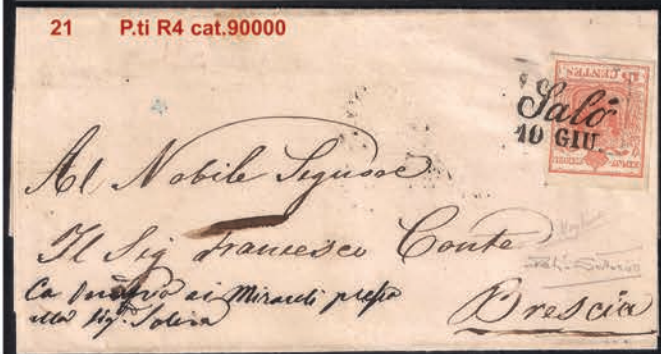 21 P.ti R4 cat.90000
15 CENTES.
Salò
10 GIU.
Al Nobile Signore
Il Sig Francesco Conte
ai Miracoli presso
alla Sig.
Brescia